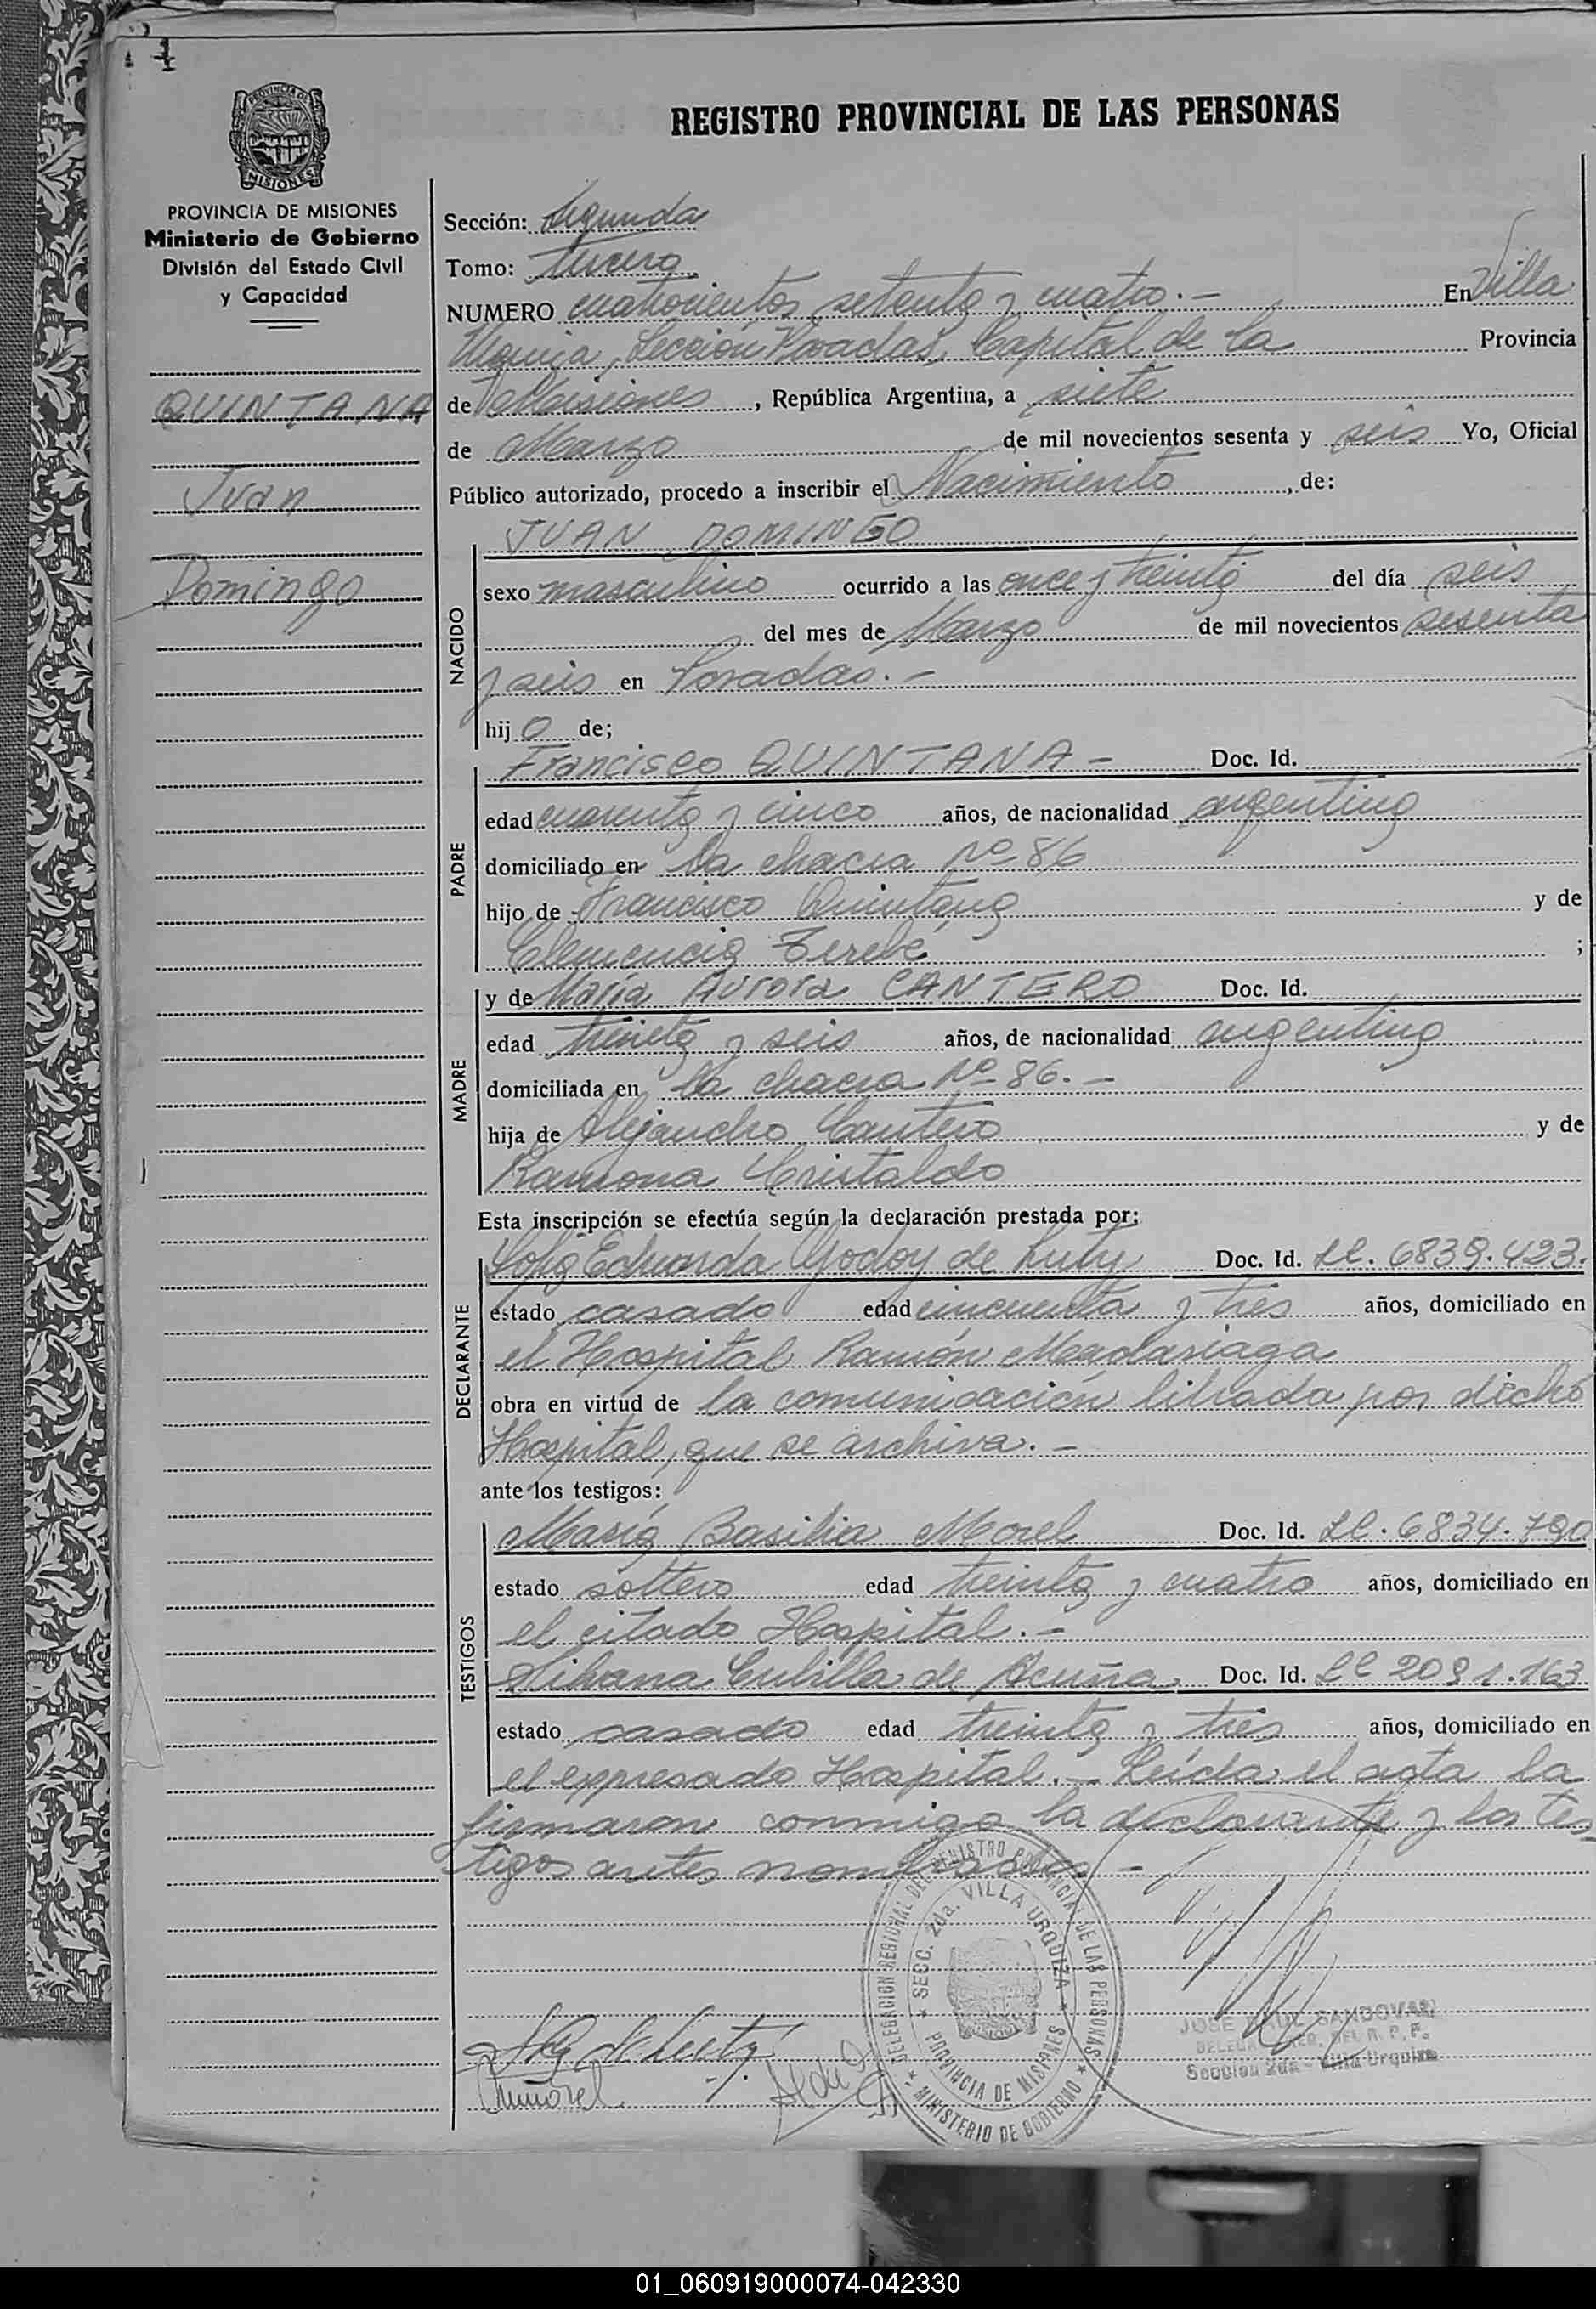 REGISTRO PROVINCIAL DE LAS PERSONAS
PROVINCIA DE MISIONES
PROVINCIA DE MISIONES
Ministerio de Gobierno
División del Estado Civil
y Capacidad
QUINTANA
Juan
Domingo
Sección: Segunda
Tomo: tercero
NUMERO cuatrocientos setenta y cuatro.- En Villa
Urquiza, Sección Posadas, Capital de la Provincia
de Misiones, República Argentina, a siete
de Marzo de mil novecientos sesenta y seis Yo, Oficial
Público autorizado, procedo a inscribir el Nacimiento, de:
JUAN DOMINGO
NACIDO
sexo masculino ocurrido a las once y treinta del día seis
del mes de Marzo de mil novecientos sesenta
y seis en Posadas.-
hijo de;
PADRE
Francisco QUINTANA - Doc. Id.
edad cuarenta y cinco años, de nacionalidad argentina
domiciliado en la chacra Nº 86
hijo de Francisco Quintana y de
Clemencia ;
MADRE
y de María Aurora CANTERO Doc. Id.
edad treinta y seis años, de nacionalidad argentina
domiciliada en la chacra Nº 86.-
hija de Alejandro Cantero y de
Ramona Cristaldo
Esta inscripción se efectúa según la declaración prestada por:
DECLARANTE
Sofía Eduarda Godoy de Luty Doc. Id. LC. 6839.423.
estado casado edad cincuenta y tres años, domiciliado en
el Hospital Ramón Madariaga
obra en virtud de la comunicación librada por dicho
Hospital, que se archiva.-
ante los testigos:
TESTIGOS
María Basilia Morel Doc. Id. LC. 6834.790
estado soltero edad treinta y cuatro años, domiciliado en
el citado Hospital.-
Silvana Cubilla de Acuña Doc. Id. LC 2091.163.
estado casado edad treinta y tres años, domiciliado en
el expresado Hospital.- Leída el acta la
firmaron conmigo la declarante y los tes
tigos antes nombrados -
DELEGACION REGIONAL DEL REGISTRO PROVINCIAL DE LAS PERSONAS
SECC. 2da. VILLA URQUIZA
PROVINCIA DE MISIONES
MINISTERIO DE GOBIERNO
JOSE RAUL SANDOVAL
DEL R. P. P.
Sección 2da - Villa Urquiza
01_060919000074-042330